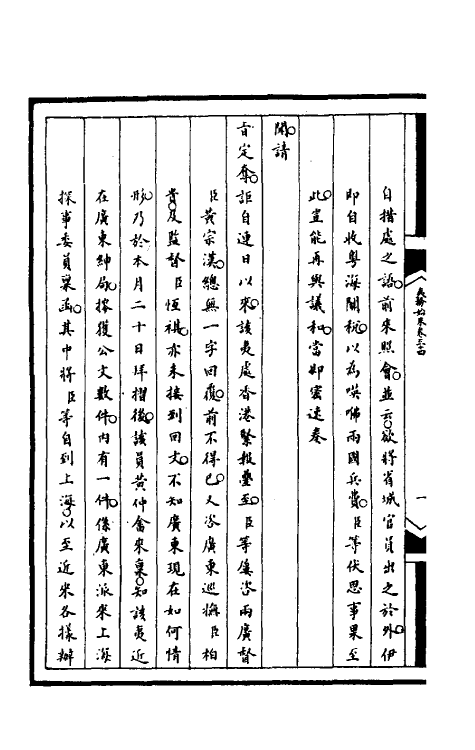 自措處之語前來照會並云欲將省城官員出之於外伊
即自收粵海關稅以為㗸咈兩國兵費臣等伏思事果至
此豈能再與議和當即密速奏
聞請
旨定奪詎自連日以來該夷處香港緊報疊至臣等屢咨兩廣督
臣黃宗漢總無一字回復前不得已又咨廣東巡撫臣柏
貴及監督臣恆祺亦未接到回文不知廣東現在如何情
形乃於本月二十日拜摺後該員黃仲畬來稟知該夷近
在廣東紳局搜獲公文數件內有一件係廣東派來上海
探事委員稟函其中將臣等自到上海以至近來各樣辦
夷務始末卷三十四
一